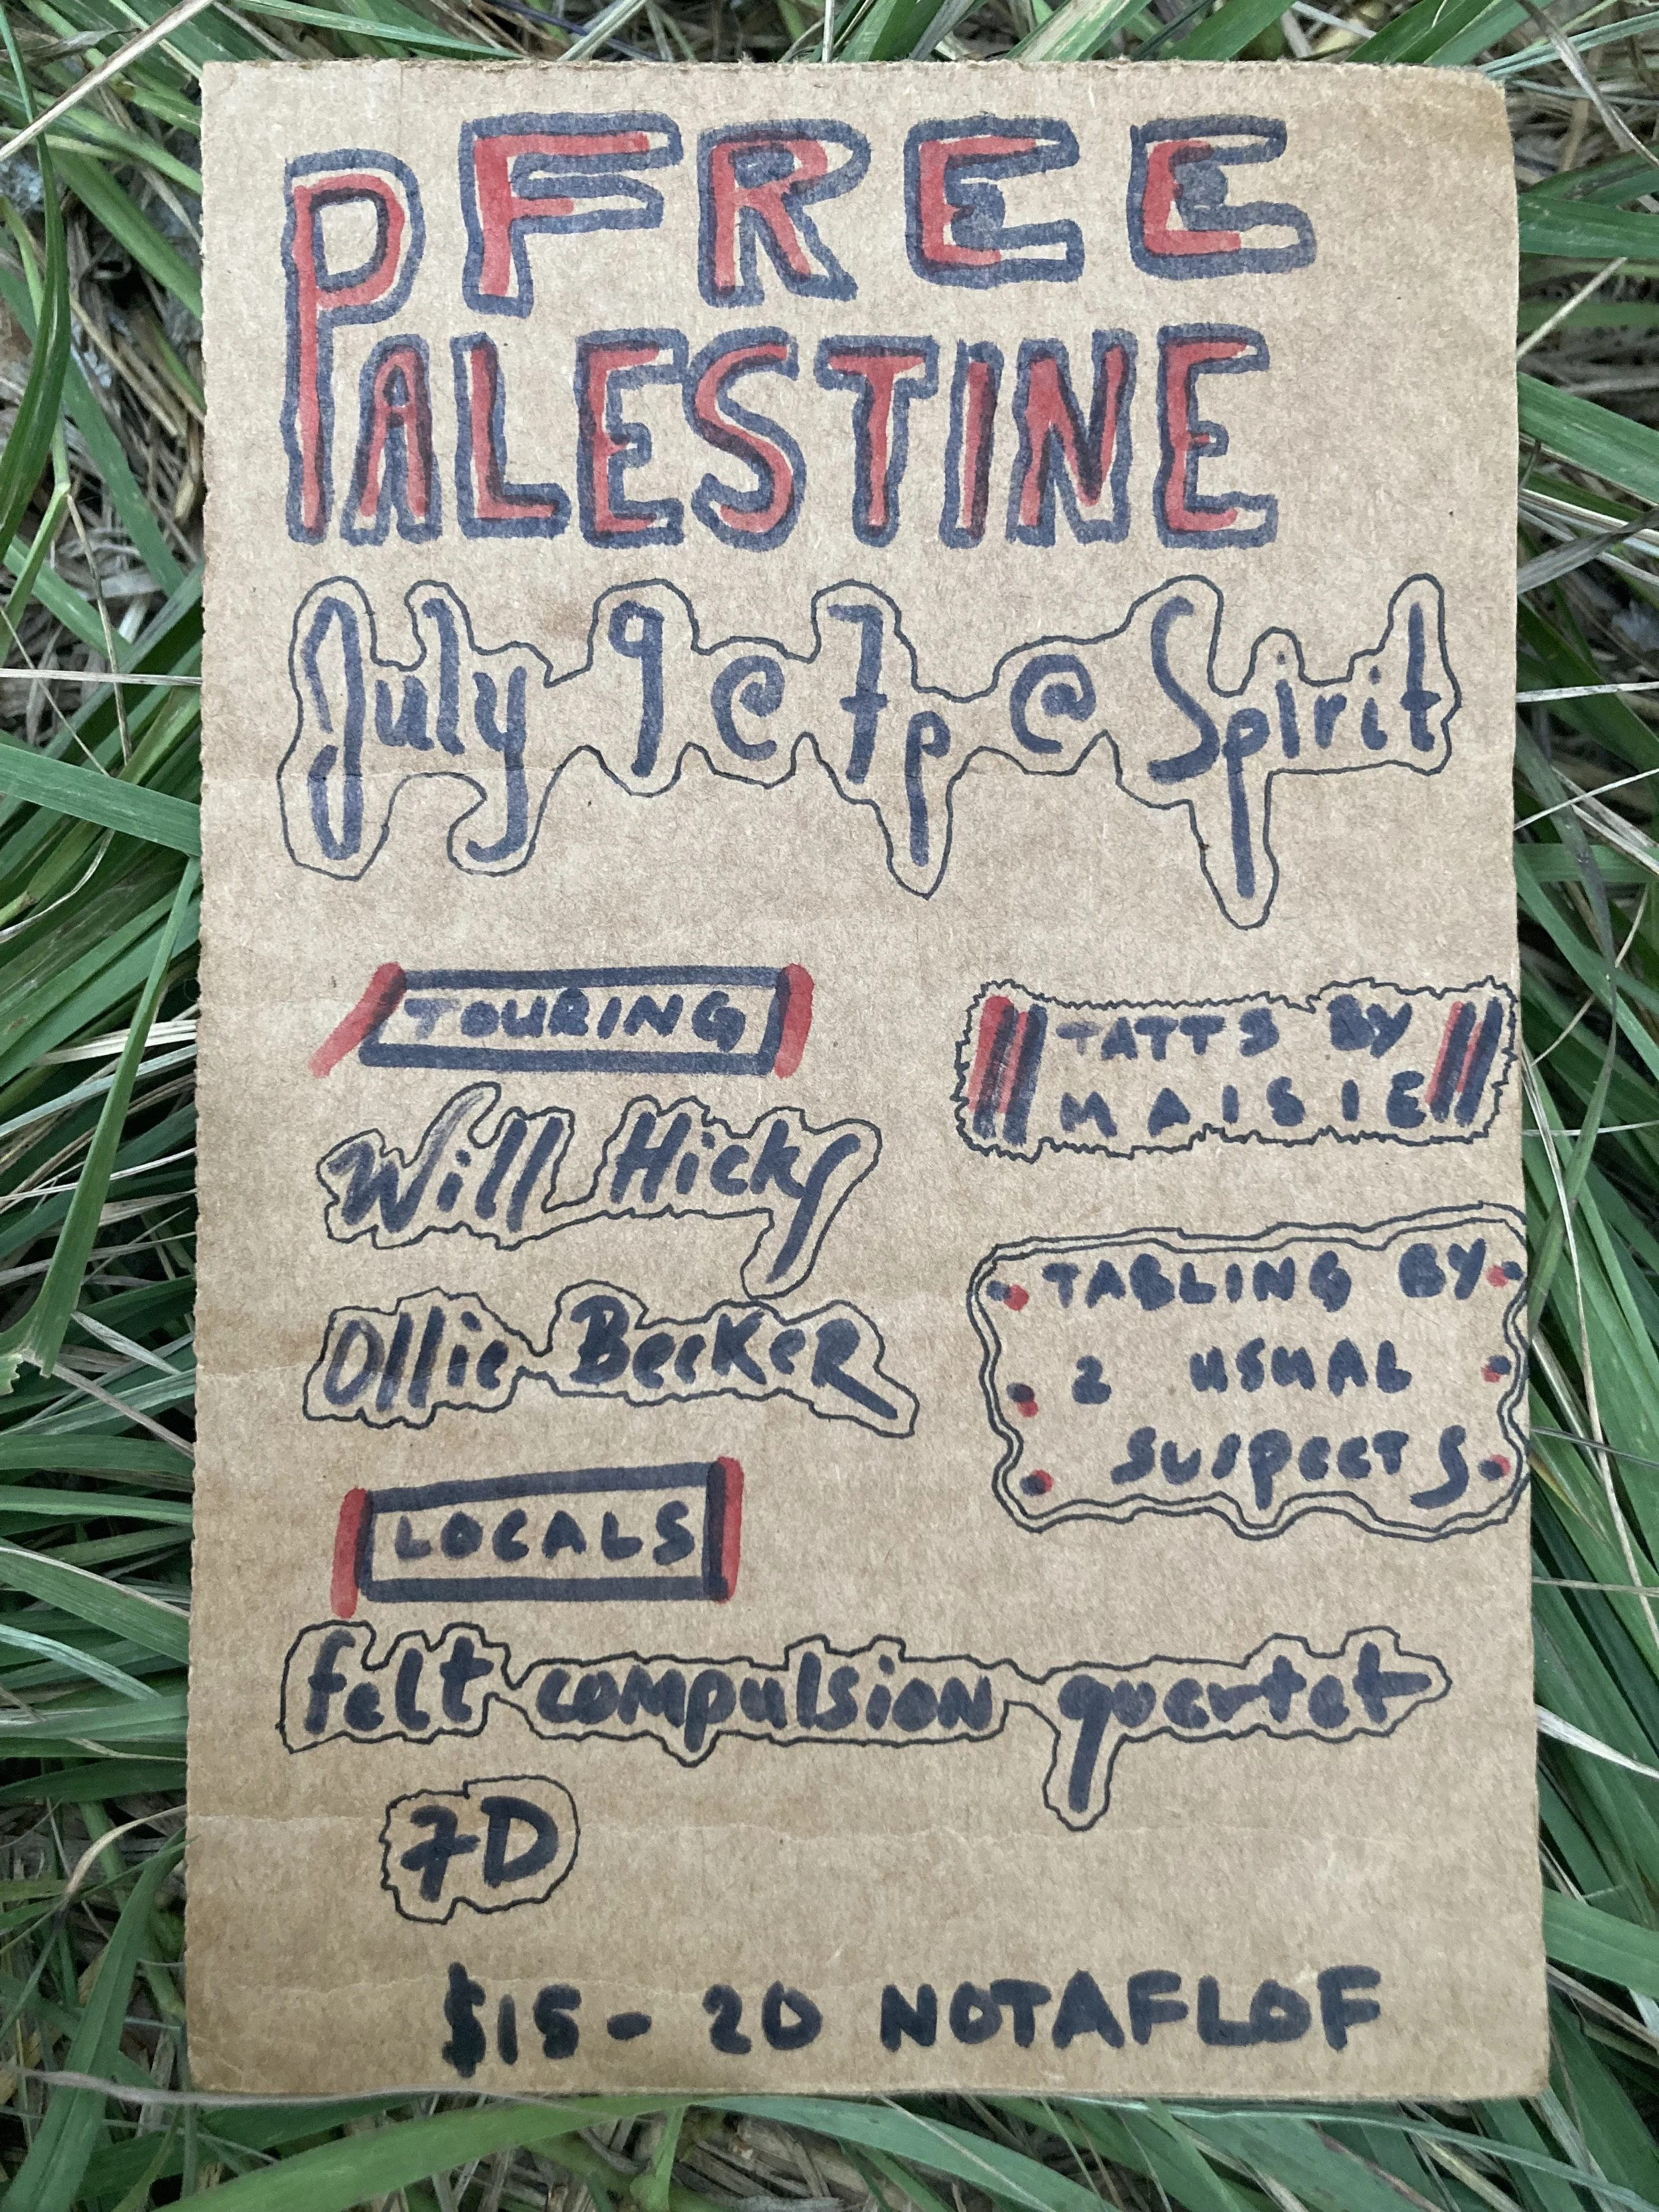 FREE
PALESTINE
July 9 @ 7p @ Spirit
TOURING
Will Hicks
Ollie Becker
LOCALS
felt compulsion quartet
7D
TATTS BY
MAISIE
TABLING BY
2 USUAL
SUSPECTS
$15-20 NOTAFLOF